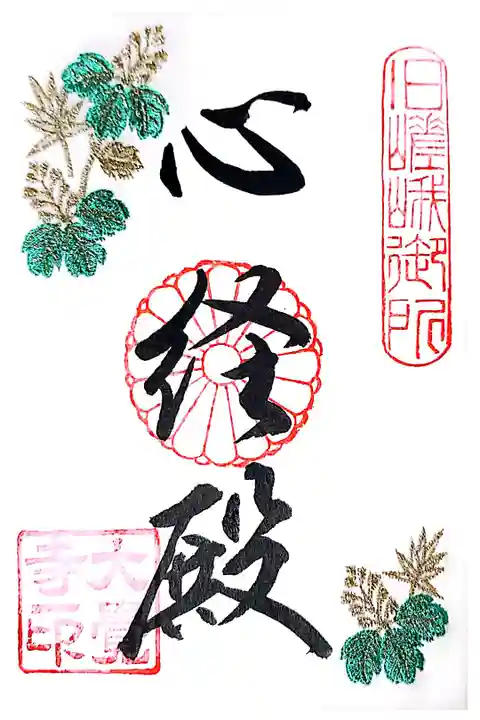 旧嵯峨御所
心経殿
大覚寺印